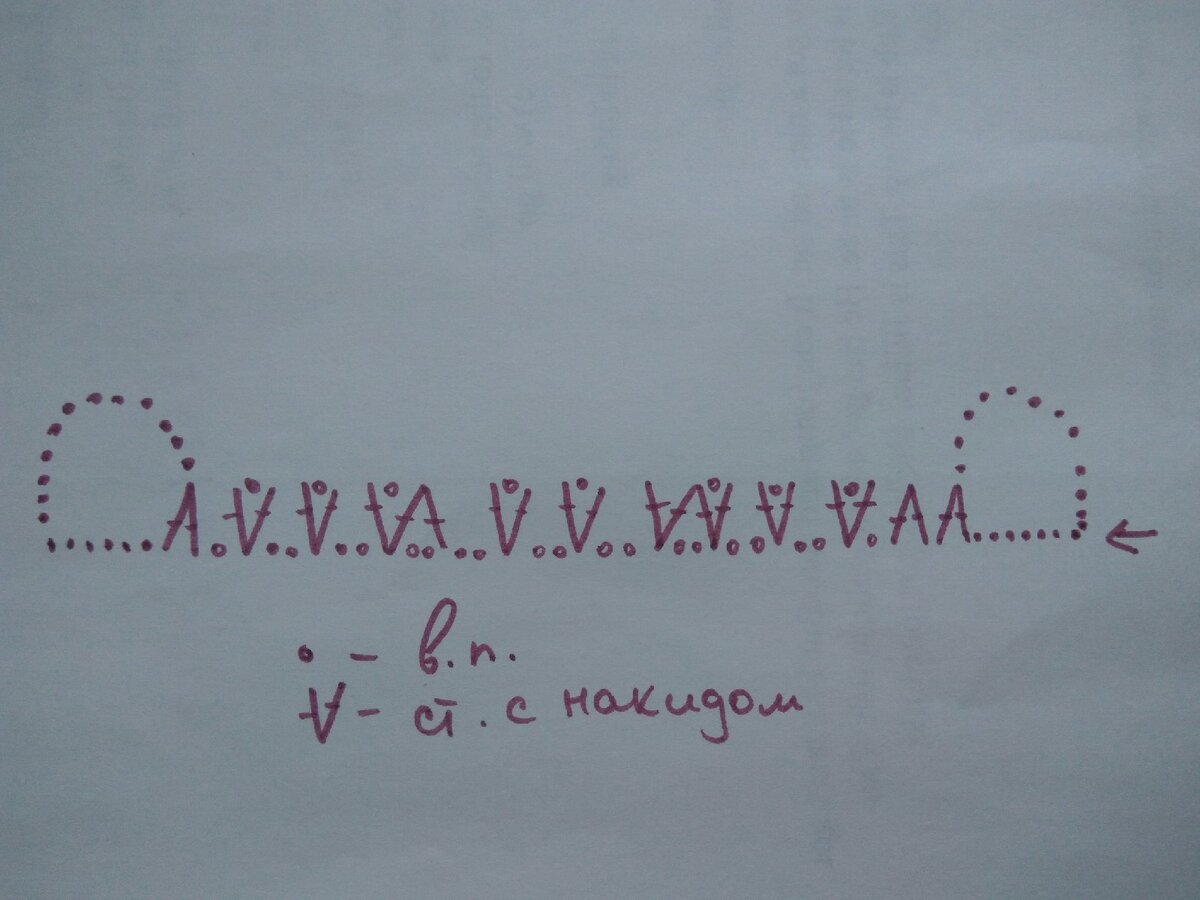 • – в.п.
V – ст. с накидом